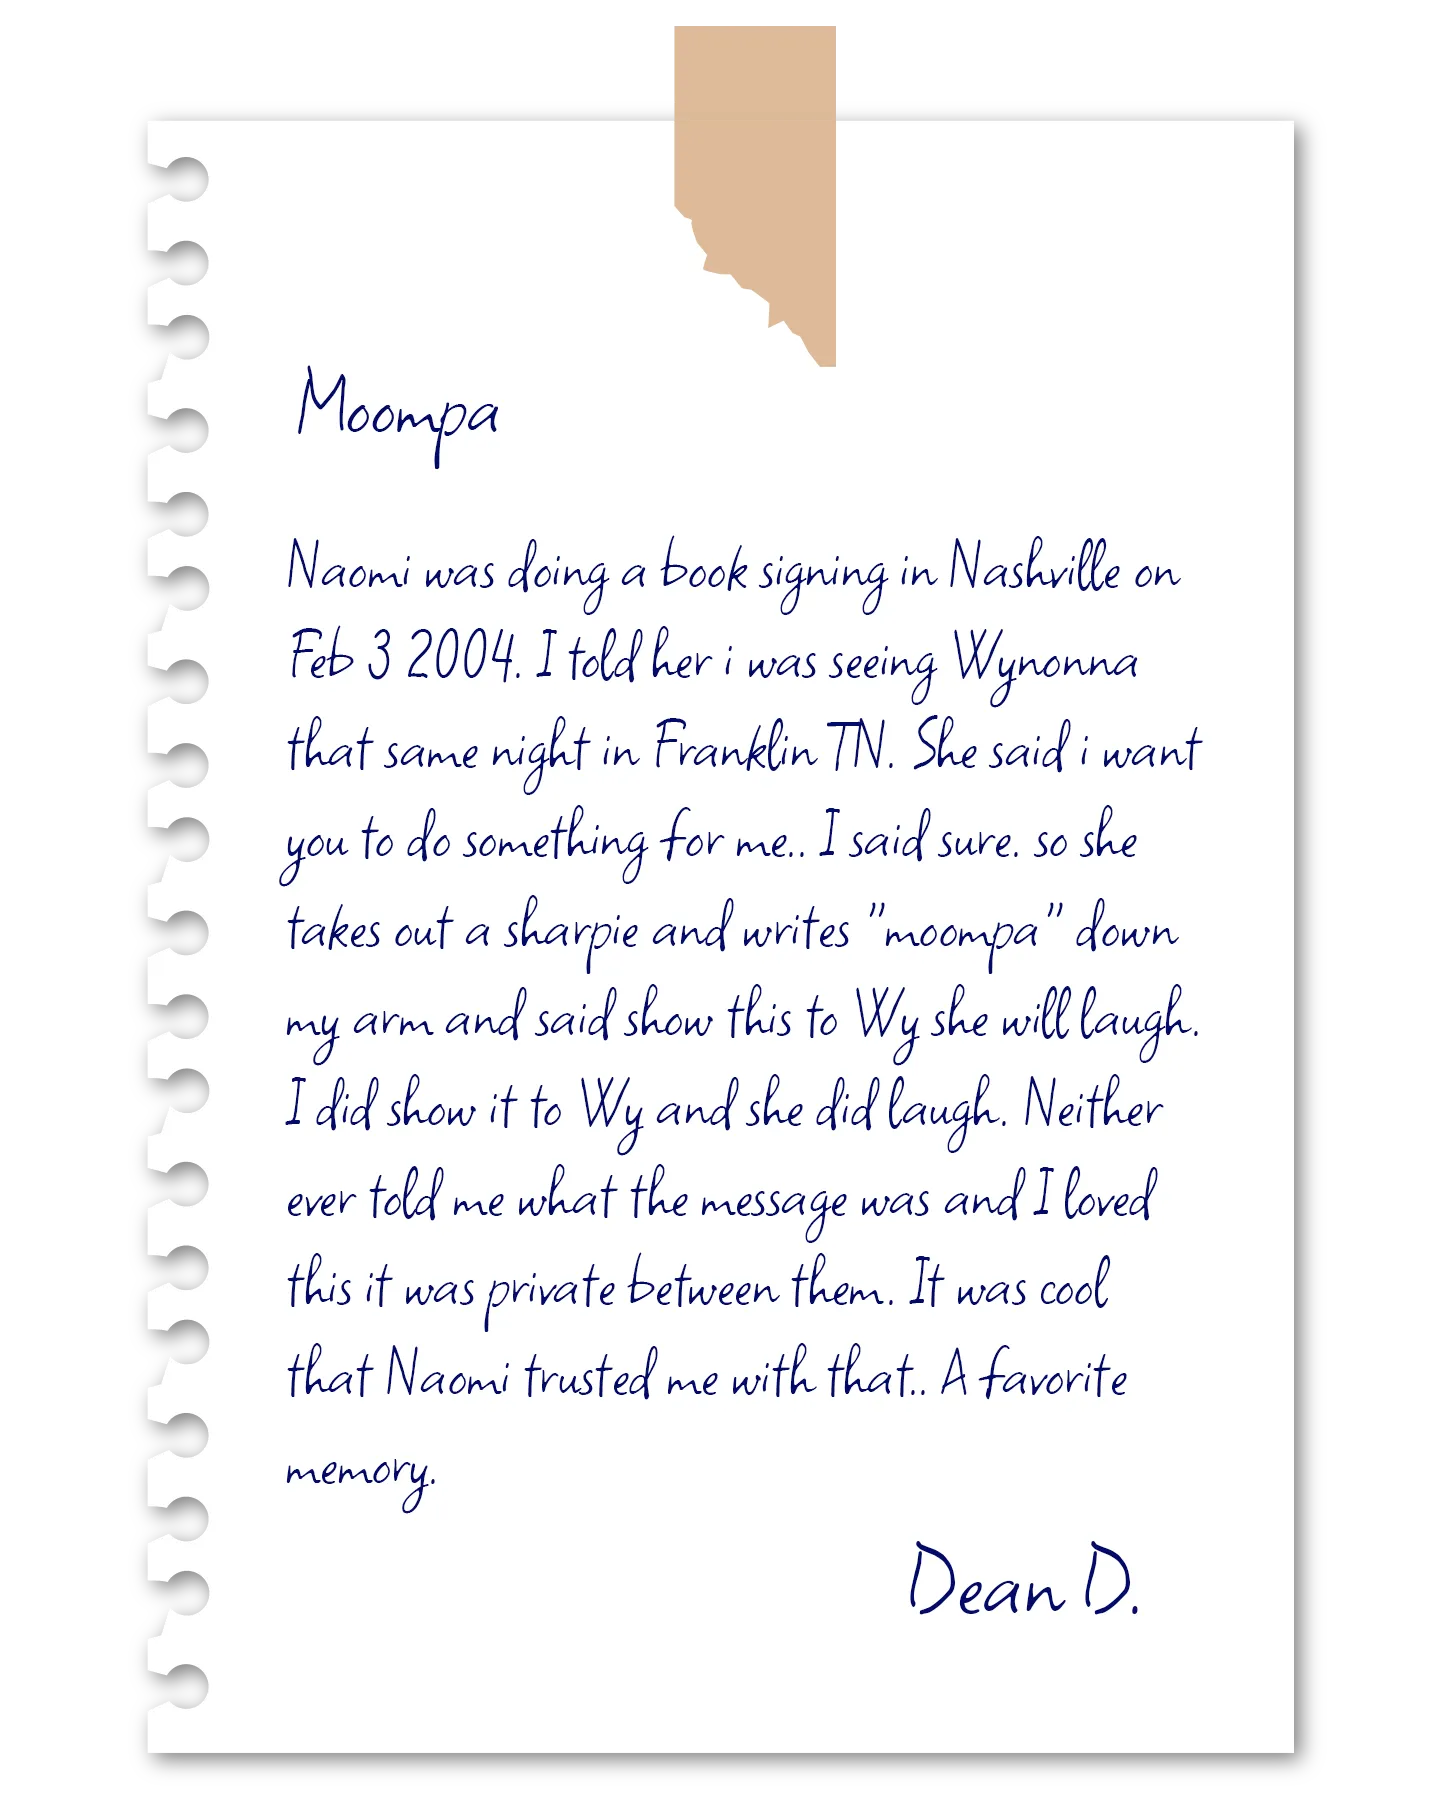 Moompa
Naomi was doing a book signing in Nashville on
Feb 3 2004. I told her i was seeing Wynonna
that same night in Franklin TN. She said i want
you to do something for me.. I said sure. so she
takes out a sharpie and writes "moompa" down
my arm and said show this to Wy she will laugh.
I did show it to Wy and she did laugh. Neither
ever told me what the message was and I loved
this it was private between them. It was cool
that Naomi trusted me with that.. A favorite
memory.
Dean D.